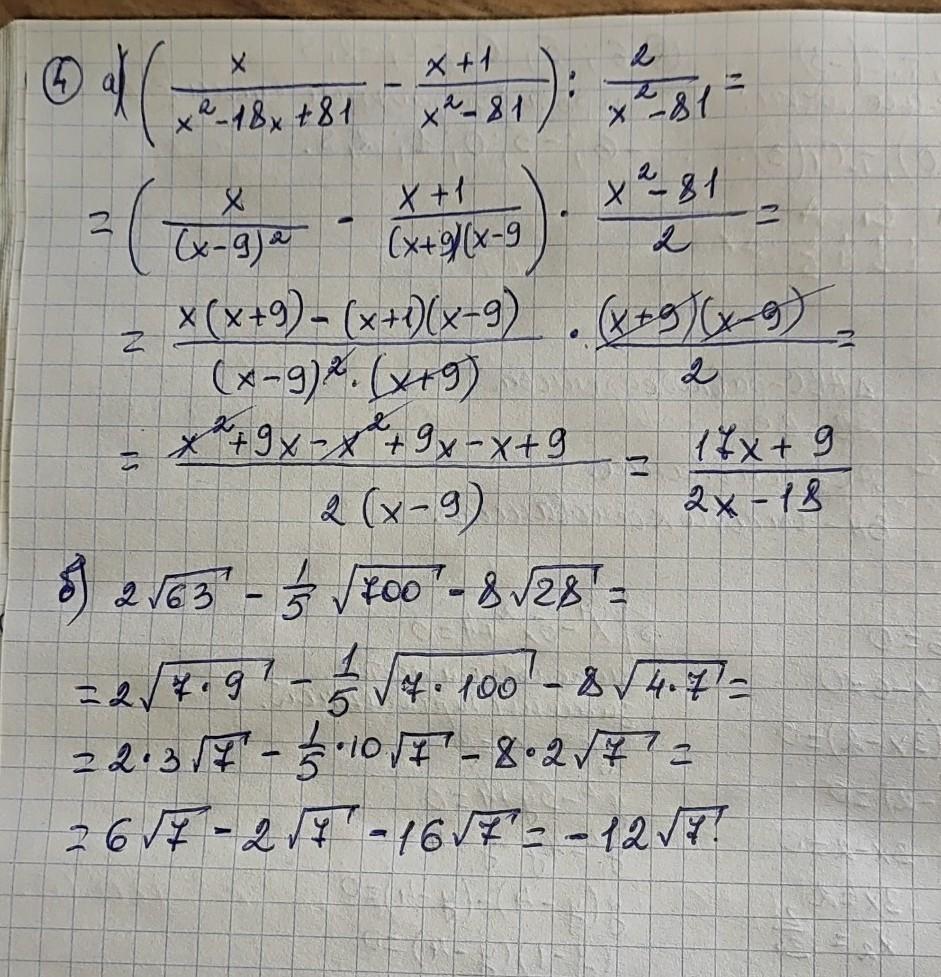 4 а) (x/(x²-18x+81) - (x+1)/(x²-81)) : 2/(x²-81) =
= (x/(x-9)² - (x+1)/((x+9)(x-9)) · (x²-81)/2 =
= (x(x+9)-(x+1)(x-9))/((x-9)²·(x+9)) · ((x+9)(x-9))/2 =
= (x²+9x-x²+9x-x+9)/(2(x-9)) = (17x+9)/(2x-18)
б) 2√63 - 1/5 √700 - 8√28 =
= 2√(7·9) - 1/5 √(7·100) - 8√(4·7) =
= 2·3√7 - 1/5·10√7 - 8·2√7 =
= 6√7 - 2√7 - 16√7 = -12√7.